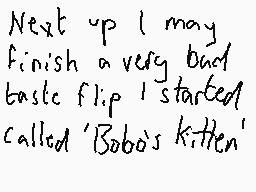 Next up I may
finish a very bad
taste flip I started
called 'Bobo's kitten'